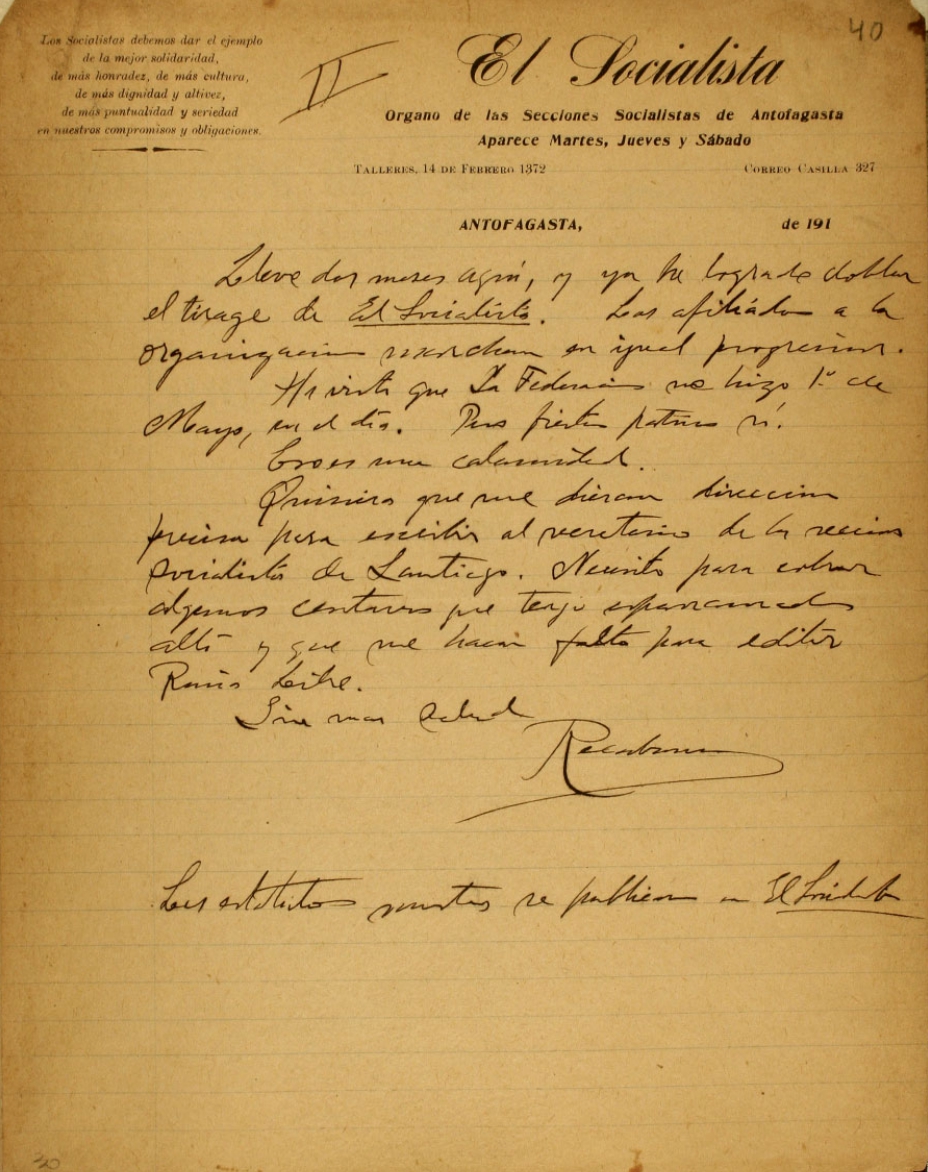 40
Los Socialistas debemos dar el ejemplo
de la mejor solidaridad,
de más honradez, de más cultura,
de más dignidad y altivez,
de más puntualidad y seriedad
en nuestros compromisos y obligaciones.
II
El Socialista
Organo de las Secciones Socialistas de Antofagasta
Aparece Martes, Jueves y Sábado
TALLERES, 14 DE FEBRERO 1372
CORREO CASILLA 327
ANTOFAGASTA, de 191
Llevo dos meses aquí, y ya he logrado doblar
el tirage de El Socialista. Los afiliados a la
organizacion marchan en igual progresion.
He visto que La Federacion no hizo 1º de
Mayo, en el dia. Pero fiestas patrias si.
Eso es una calamidad.
Quisiera que me dieran direccion
precisa para escribir al secretario de la seccion
socialista de Santiago. Necesito para cobrar
algunos centavos que tengo desparramados
allá y que me hacen falta para editar
Sin mas salud
Recabarren
Los estatutos nuestros se publican en El Socialista